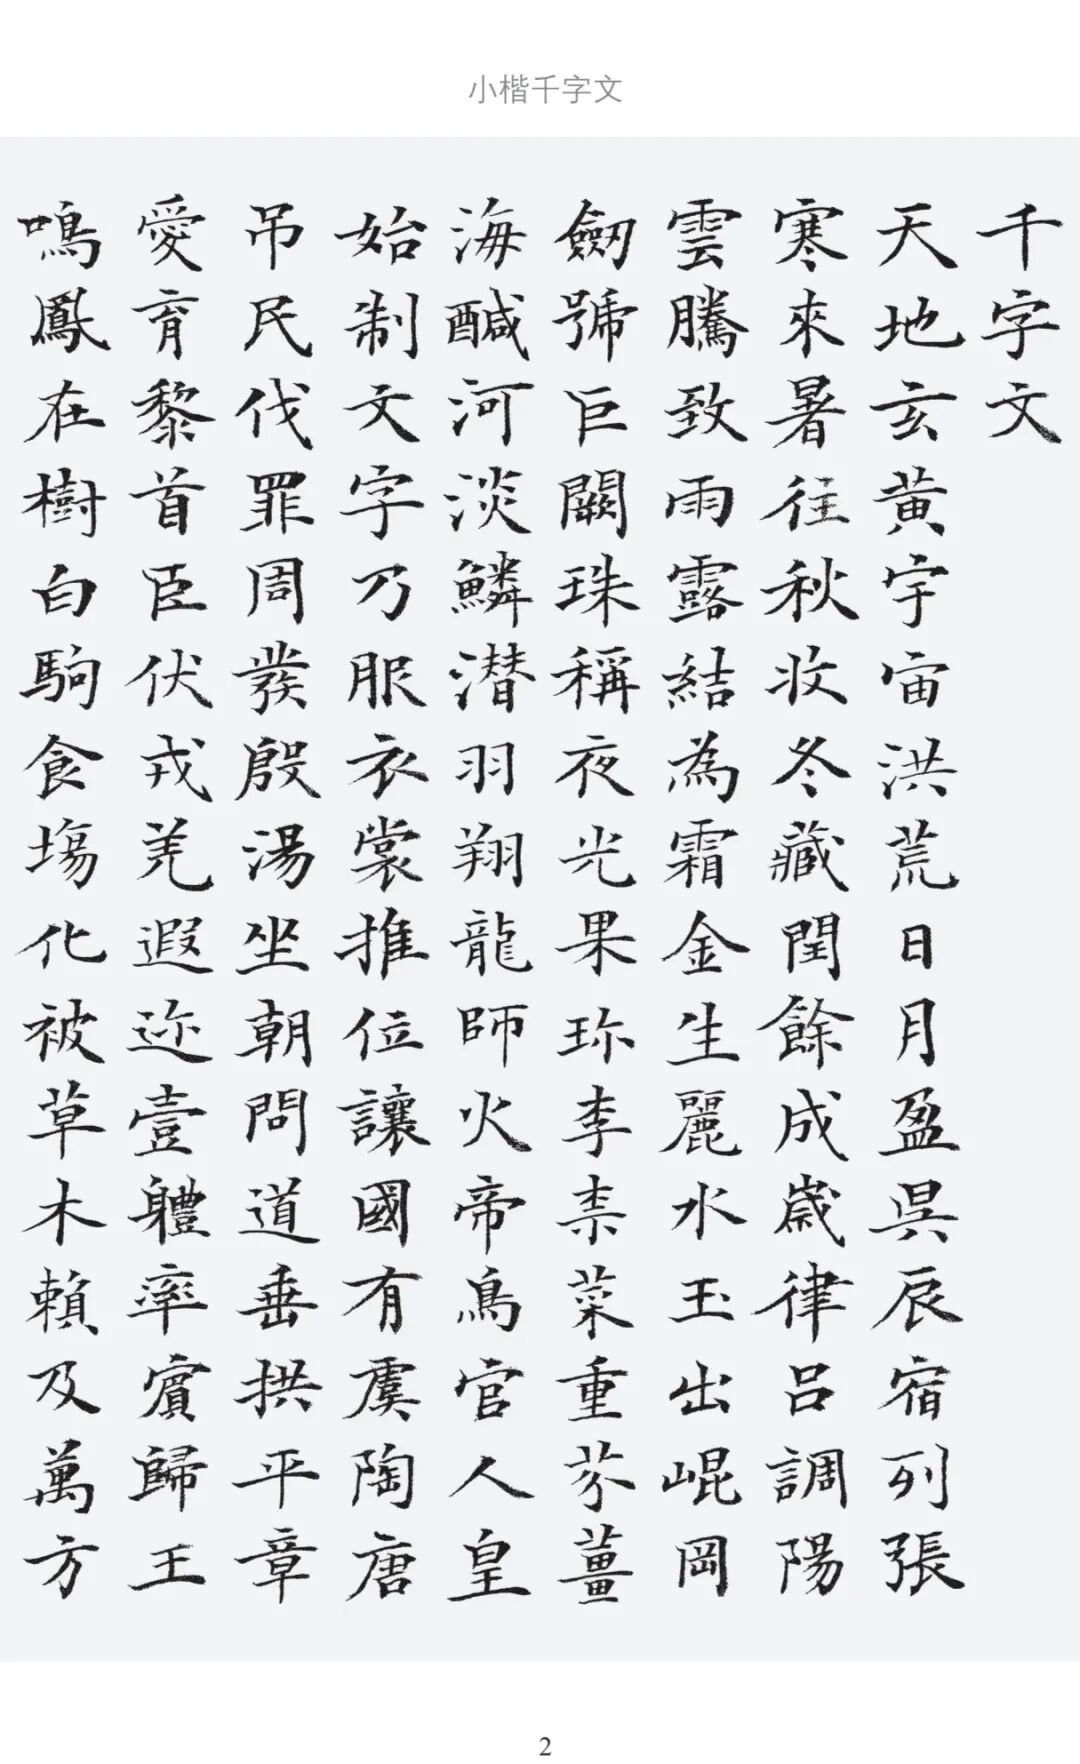 小楷千字文
千字文
天地玄黄宇宙洪荒日月盈昃辰宿列張
寒來暑往秋收冬藏閏餘成歲律呂調陽
雲騰致雨露結為霜金生麗水玉出崐岡
劒號巨闕珠稱夜光果珎李柰菜重芥薑
海醎河淡鱗潛羽翔龍師火帝鳥官人皇
始制文字乃服衣裳推位讓國有虞陶唐
吊民伐罪周發殷湯坐朝問道垂拱平章
愛育黎首臣伏戎羌遐迩壹體率賓歸王
鳴鳳在樹白駒食塲化被草木賴及萬方
2